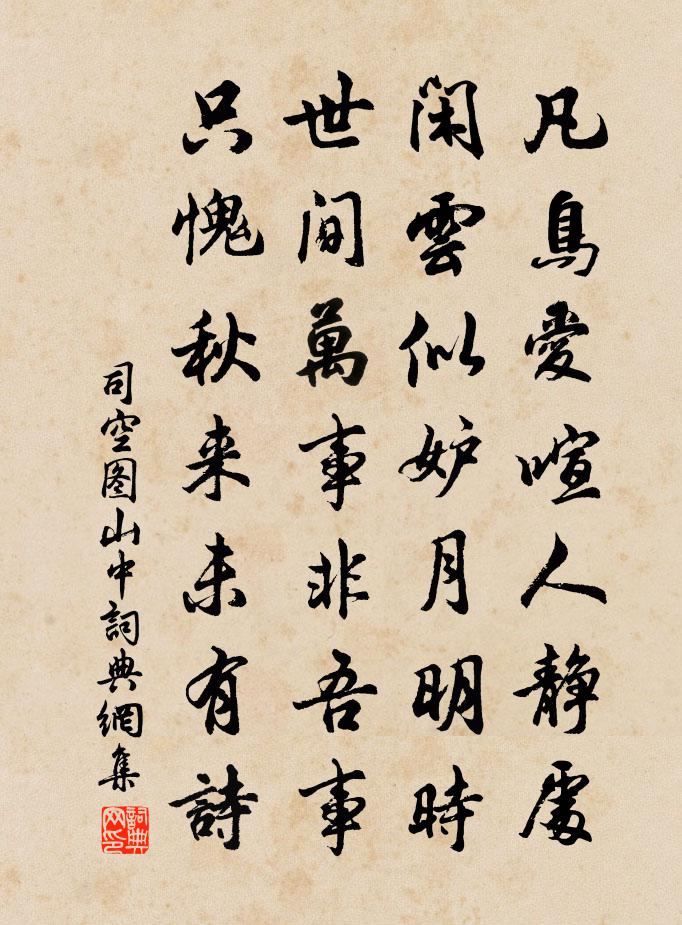 凡鳥愛喧人静處
閑雲似妒月明時
世间萬事非吾事
只愧秋来未有詩
司空图山中詞典網集
詞典
网印